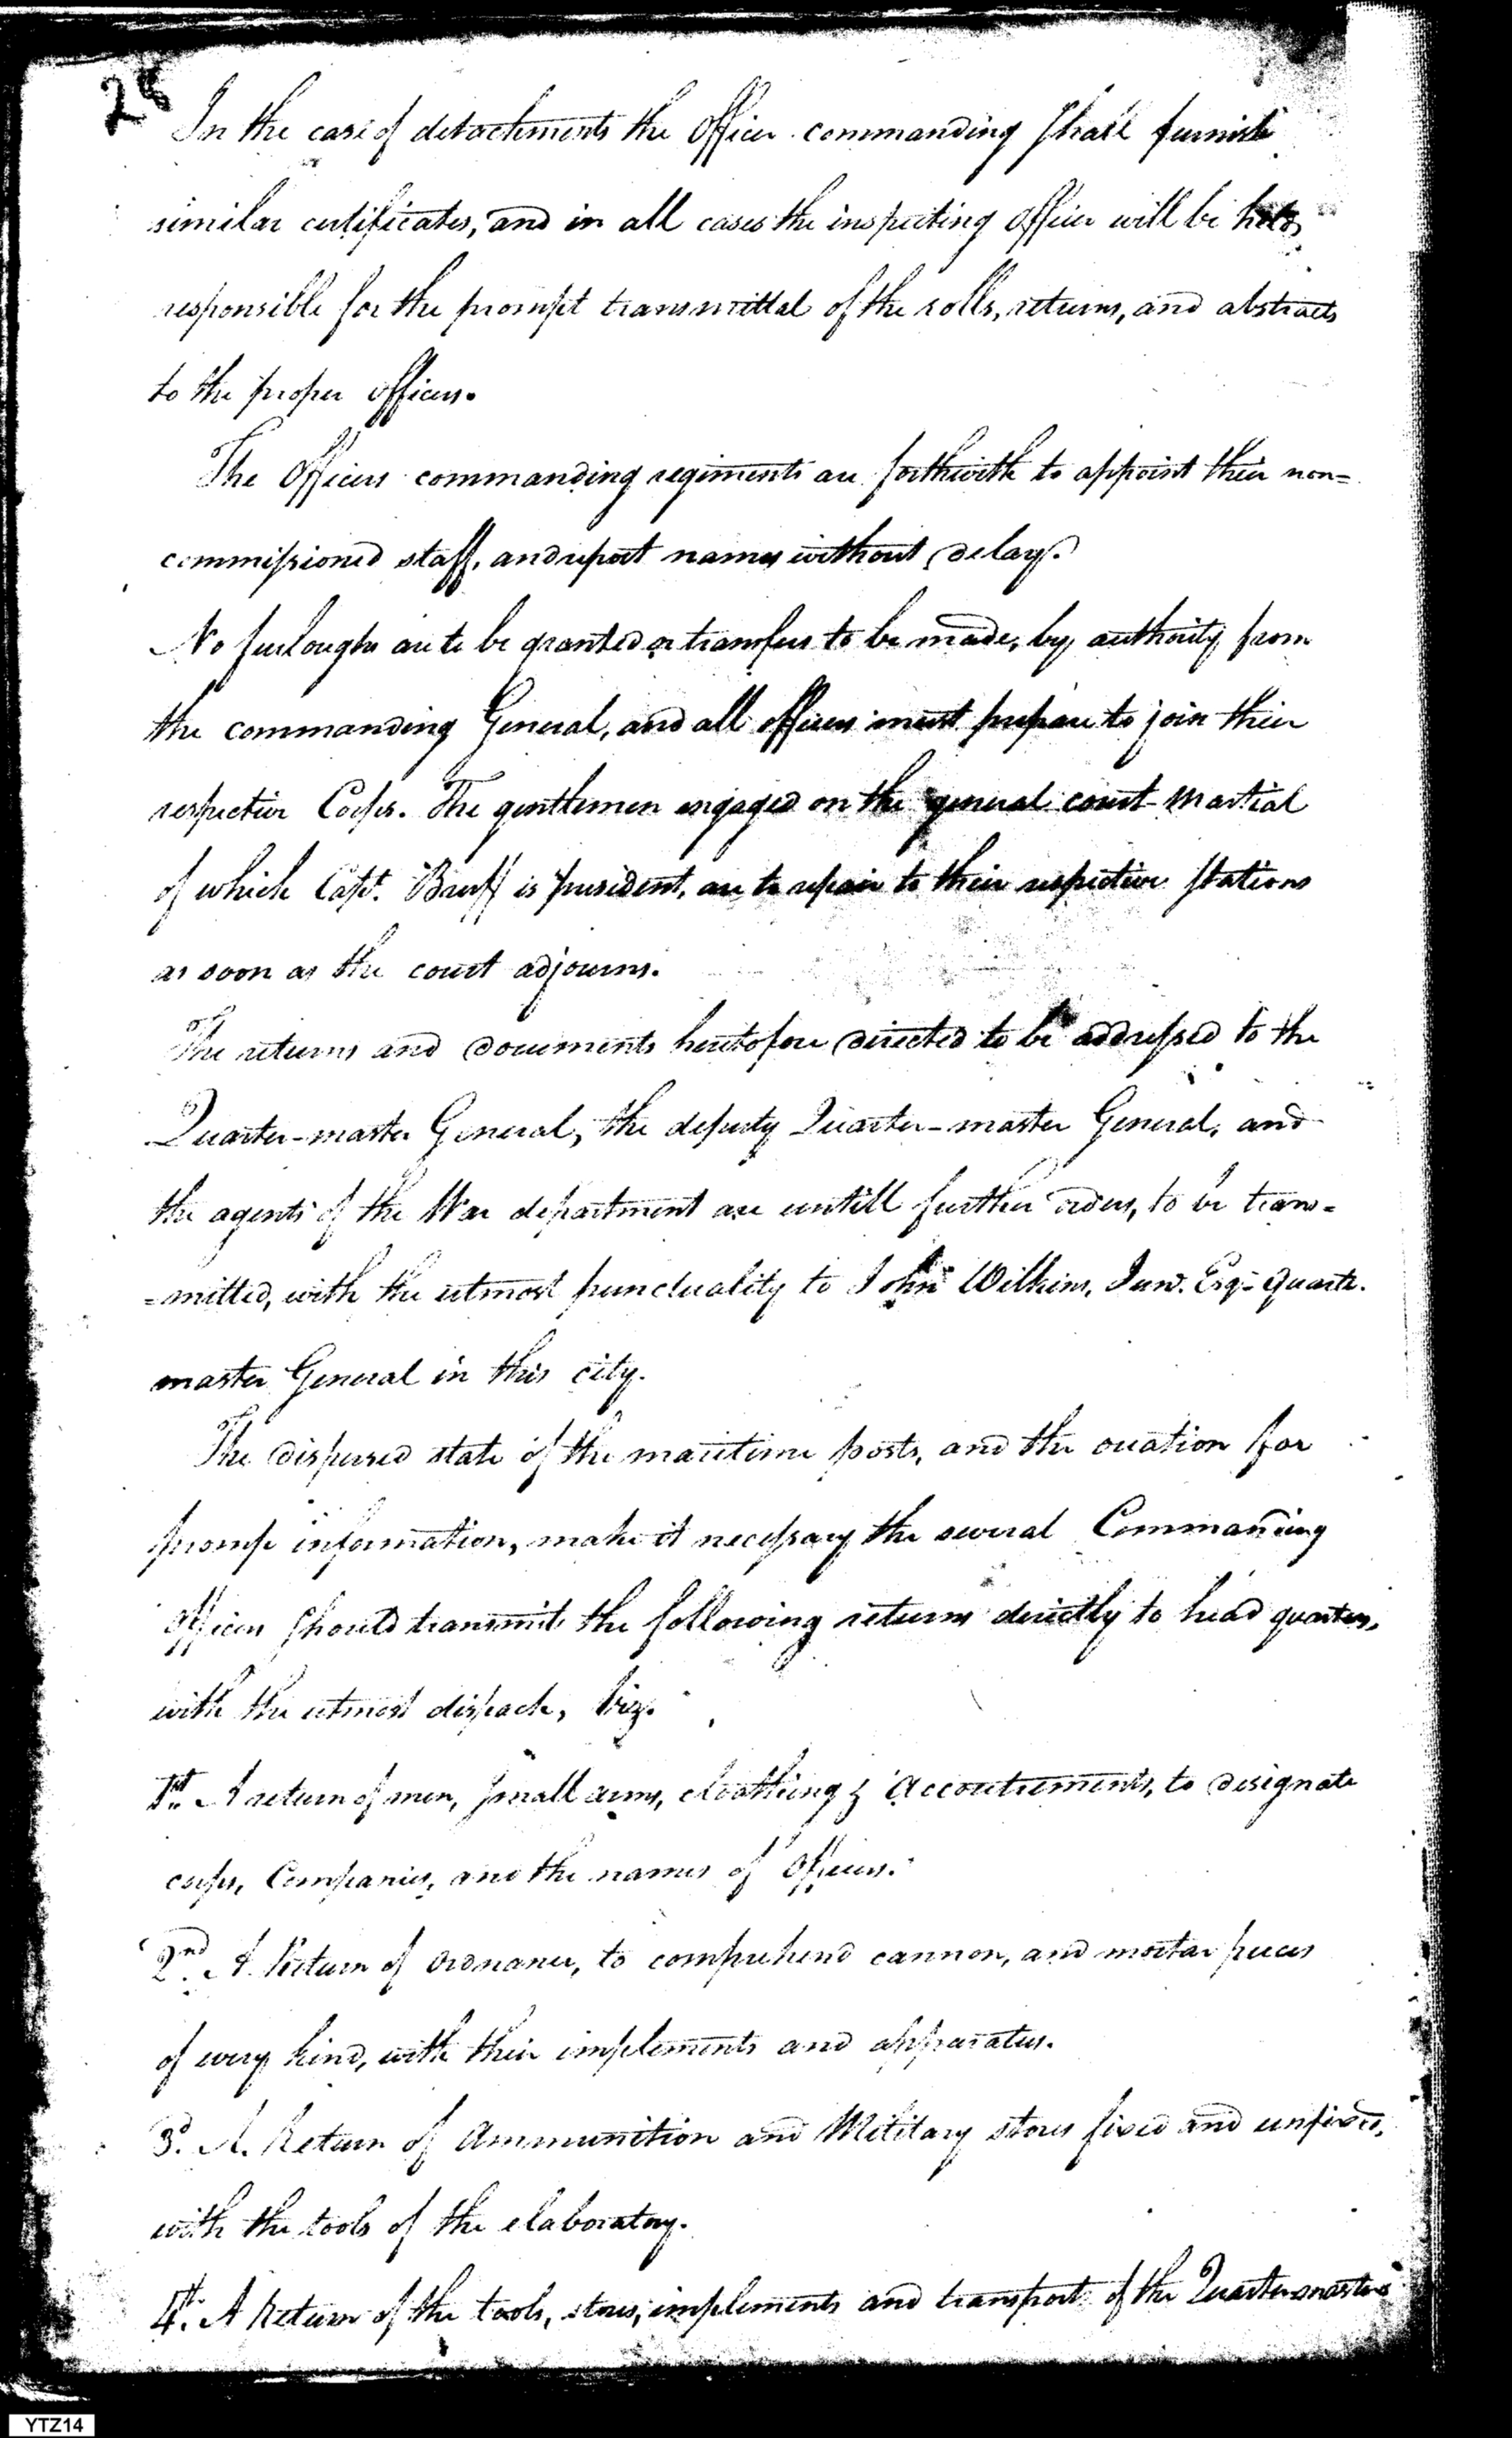 28
In the case of detachments the Officer commanding shall furnish
similar certificates, and in all cases the inspecting Officer will be held
responsible for the prompt transmittal of the rolls, returns, and abstracts
to the proper officers.
The Officers commanding regiments are forthwith to appoint their non=
commissioned staff, and report names without delay.
No furloughs are to be granted or transfers to be made, by authority from
the commanding General, and all officers must prepare to join their
respective Corps. The gentlemen engaged on the general court-Martial
of which Capt. Bruff is president, are to repair to their respective stations
as soon as the court adjourns.
The returns and documents heretofore directed to be addressed to the
Quarter-master General, the deputy Quarter-master General, and
the agents of the War department are untill further orders, to be trans=
=mitted, with the utmost punctuality to John Wilkins, Junr. Esqr. Quarter.
master General in this city.
The dispersed state of the maritime posts, and the ocation for
promp information, make it necessary the several Commanding
Officers should transmit the following returns directly to head quarters,
with the utmost dispach, Viz.
1st. A return of men, small arms, cloathing & Accoutrements, to designate
corps, Companies, and the names of Officers.
2nd. A Return of Ordnance, to comprehend cannon, and mortar pieces
of every kind, with their implements and apparatus.
3d. A. Return of Ammunition and Military stores fixed and unfixed,
with the tools of the elaboratory.
4th. A Return of the tools, stores, implements and transport of the Quartermasters
YTZ14